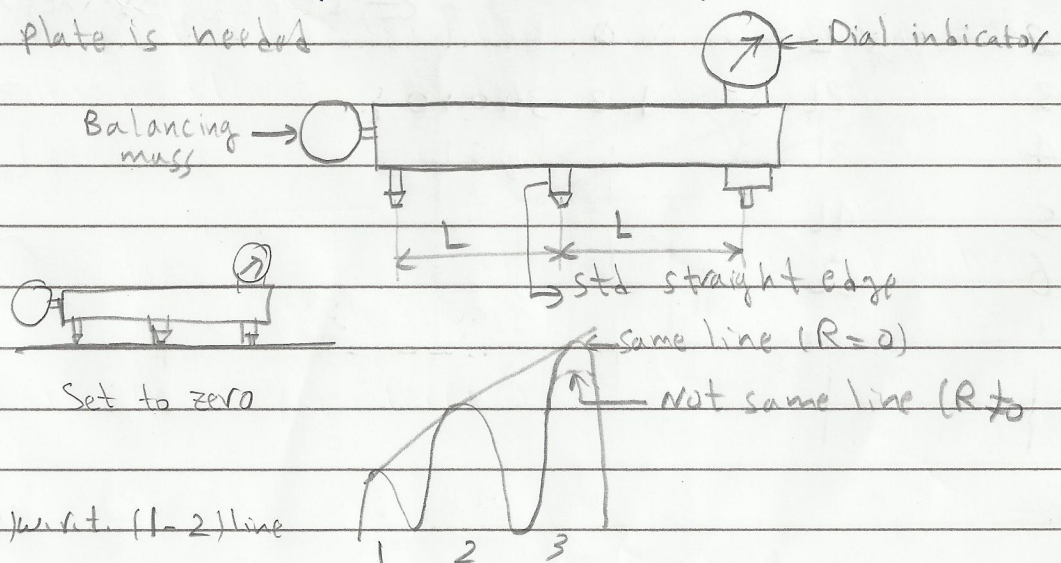 plate is needed
Dial indicator
Balancing
mass
L L
std straight edge
same line (R=0)
Set to zero
Not same line (R≠0
)w.r.t. (1-2) line
1 2 3